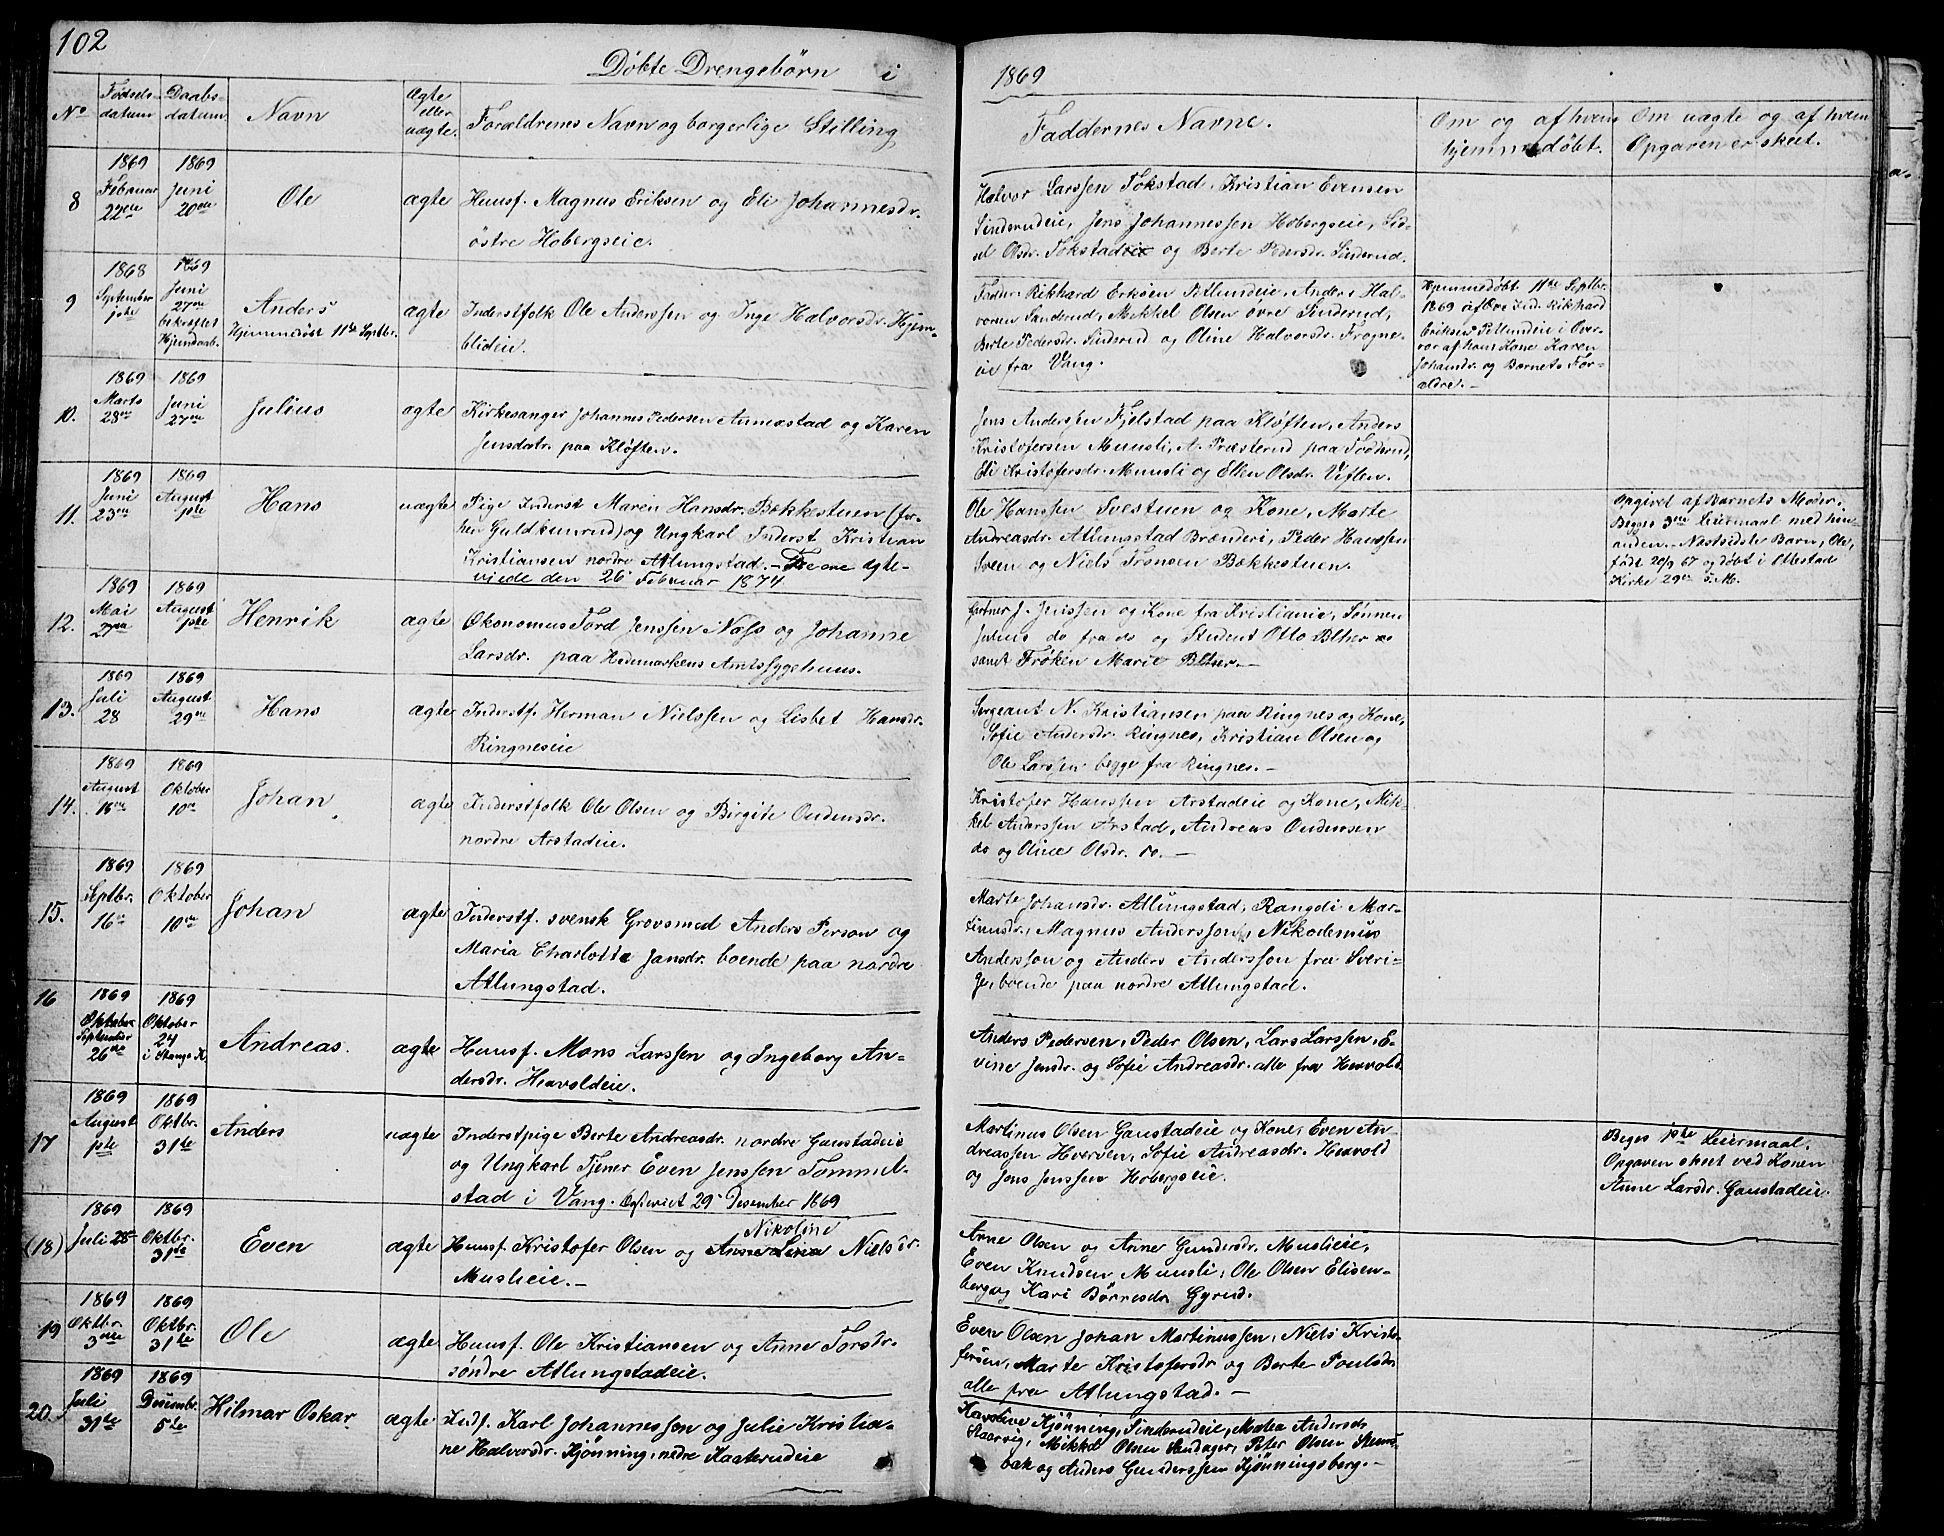 102
Døbte Drengebørn i 1869
No
Fødsels-
datum
Daabs-
datum
Navn
Ægte
eller
uægte.
Forældrenes Navn og borgerlige Stilling
Faddernes Navne.
Om og af hvem
hjemmedøbt.
Om uægte og af hvem
Opgaven er skeet.
8
1869
Februar
22de
1869
Juni
20de
Ole
ægte
Huusf. Magnus Eriksen og Eli Johannesdr.
østre Hobergseie.
Halvor Larssen Tokstad, Kristian Evensen
Sinderudeie, Jens Johannessen Hobergseie, Sid-
sel Olsdr. Tokstadeie og Berte Pedersdr. Sinderud.
9
1868
September
1ste
1869
Juni
27de
bekræftet
Hjemdaab.
Anders
Hjemmedøbt 11te Septbr.
ægte
Inderstfolk Ole Anderssen og Inge Halvorsdr. Hjem-
blideie.
Rikhard Eriksen Pellundeie, Anders Hal-
vorsen Sanderud, Mikkel Olsen øvre Sinderud,
Berte Pedersdr. Sinderud og Oline Halvorsdr. Frogne-
eie fra Vang.
Hjemmedøbt 11te Septbr.
1869 af Rikhard
Eriksen Pellundeie i Over-
vær af hans Kone Karen
Johansdr. og Barnets For-
ældre.-
10.
1869
Marts
28de
1869
Juni
27de
Julius
ægte
Kirkesanger Johannes Pedersen Annexstad og Karen
Jensdatr. paa Kløften.
Jens Anderssen Fjelstad paa Kløften, Anders
Kristofersen Muusli, A. Præsterud paa Frøberud,
Eli Kristofersdr. Muusli og Ellen Olsdr. Viflen.
11.
1869
Juni
23de
1869
August
1ste
Hans
uægte
Pige Inderst Maren Hansdr. Bakkestuen (for-
hen Guldkunrud) og Ungkarl Inderst Kristian
Kristiansen nordre Atlungstad. - Troe ægte-
viede den 26 Februar 1874
Ole Hanssen Svestuen og Kone, Marte
Andreasdr. Atlungstad Brænderi, Peder Hanssen
Sveen og Niels Tronsen Bakkestuen.
Opgivet af Barnets Moder.
Begges 3die Leiermaal med hin-
anden. - Næstsidste Barn, Ole,
født 20/9 67 og døbt i Ottestad
Kirke 29de s.M.
12.
1869
Mai
27de
1869
August
1ste
Henrik
ægte
Økonomus Tord Jenssen Næss og Johanne
Larsdr. paa Hedemarkens Amtssygehuus.
Gartner J. Jenssen og Kone fra Kristiania, Sønnen
Julius do fra do og Student Otto Blher
samt Frøken Marie Blher.-
13.
1869
Juli
28
1869
August
29de
Hans
ægte
Inderstf. Herman Nielssen og Lisbet Hansdr.
Ringneseie
Sergeant N. Kristiansen paa Ringnes og Kone,
Sofie Andersdr. Ringnes, Kristian Olsen og
Ole Larssen begge fra Ringnes.-
14.
1869
August
16de
1869
Oktober
10de
Johan
ægte
Inderstfolk Ole Olsen og Birgite Oudensdr.
nordre Arstadeie.
Kristofer Hanssen Arstadeie og Kone, Mik-
kel Anderssen Arstad, Andreas Oudensen
do og Oline Olsdr. do.-
15.
1869
Septbr.
16de
1869
Oktober
10de
Johan
ægte
Inderstf. svensk Grovsmed Anders Person og
Maria Charlotta Jansdr. boende paa nordre
Atlungstad.
Marte Johansdr. Atlungstad, Rangdi Mar-
tinusdr., Magnus Andersson, Nikodemus
Andersson og Anders Andersson fra Sveri-
ge, boende paa nordre Atlungstad.
16
1869
Oktober
September
26de
1869
Oktober
24
i Stange K.
Andreas.
ægte
Huusf. Mons Larssen og Ingeborg An-
dersdr. Hervoldeie.
Anders Pedersen, Peder Olsen, Lars Larssen, E-
vine Jensdr. og Sofie Andreasdr. alle fra Hervold.
17
1869
August
1ste
1869
Oktbr.
31te
Anders
uægte
Inderstpige Berte Andreasdr. nordre Gaustadeie
og Ungkarl Tjener Even Jenssen Tommel-
stad i Vang. Ægteviet 29 Desember 1869
Martinus Olsen Gaustadeie og Kone, Even An-
dreassen Hverven, Sofie Andreasdr. Hervold
og Jens Jenssen Hobergseie.
Begges 1ste Leiermaal.
Opgaven skeet ved Konen
Anne Larsdr. Gaustadeie.
(18)
1869
Juli 28de
1869
Oktbr.
31te
Even
ægte
Nikoline
Huusf. Kristofer Olsen og Anne Lina Nielsdr.
Muslieie.-
Arne Olsen og Anne Gundersdr. Muslieie,
Even Knudsen Muusli, Ole Olsen Elisen-
berg og Kari Børresdr. Gyrud.
19
1869
Oktbr.
3die
1869
Oktbr.
31te
Ole
ægte
Huusf. Ole Kristiansen og Anne Torsdr.
søndre Atlungstadeie.
Even Olsen, Johan Martinussen, Niels Kristo-
fersen, Marte Kristofersdr. og Berte Poulsdr.
alle fra Atlungstad.-
20.
1869
Juli
31te
1869
Desembr.
5te
Hilmar Oskar.
ægte
Indf. Karl Johannessen og Julie Kristia-
ne Halvorsdr. Kjønning, nedre Kaaterudeie
Karoline Kjønning, Sinderudeie, Mathea Andersdr.
Staarvig, Mikkel Olsen Sandager, Peter Olsen Steens-
bæk og Anders Gunderssen Kjønningsberg.-